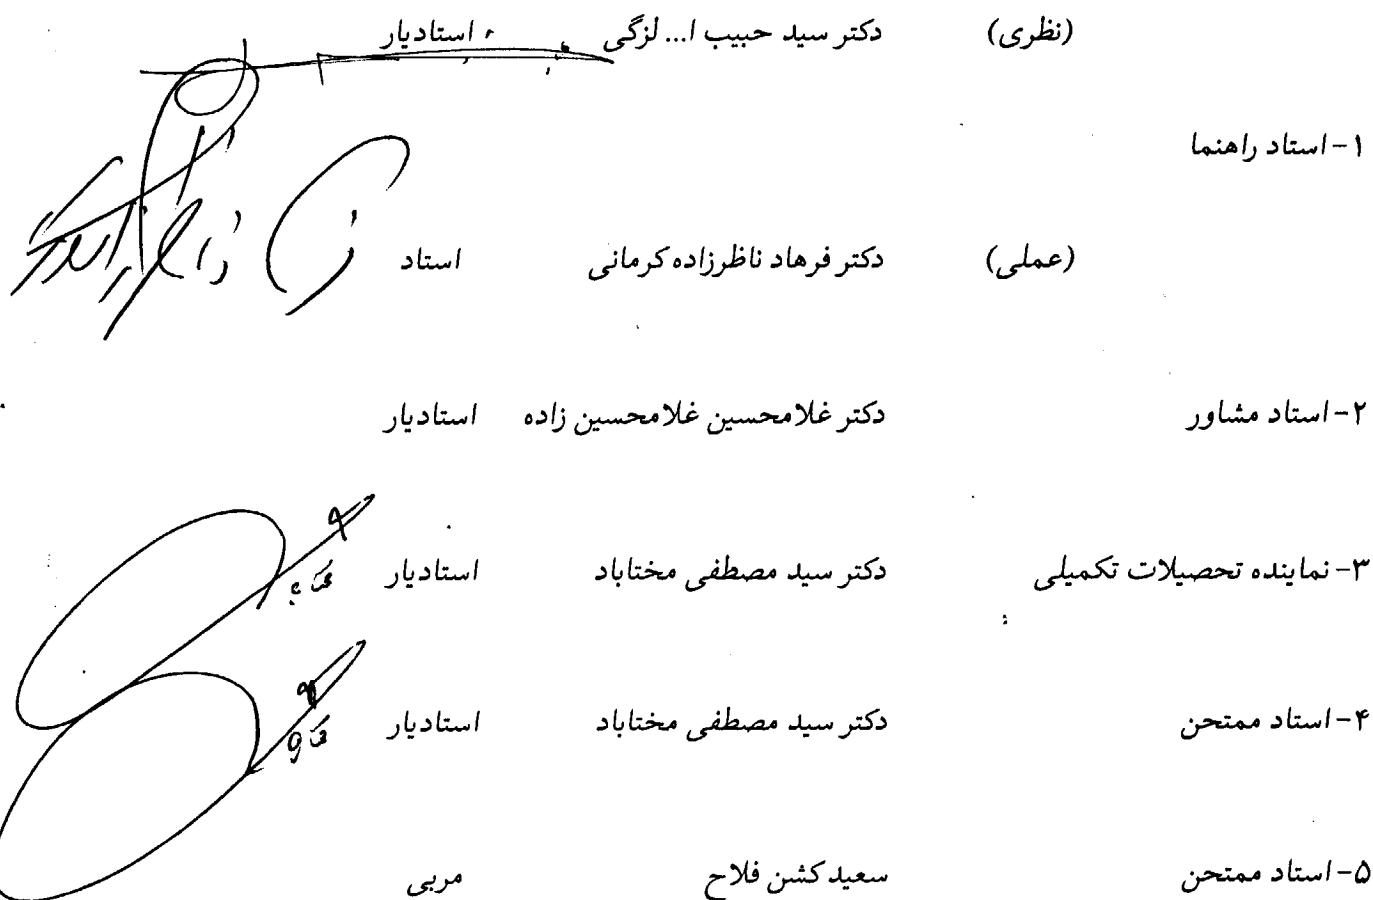 (نظری) دکتر سید حبیب ا... لزگی استادیار
۱- استاد راهنما
(عملی) دکتر فرهاد ناظرزاده کرمانی استاد
۲- استاد مشاور دکتر غلامحسین غلامحسین زاده استادیار
۳- نماینده تحصیلات تکمیلی دکتر سید مصطفی مختاباد استادیار
۴- استاد ممتحن دکتر سید مصطفی مختاباد استادیار
۵- استاد ممتحن سعید کشن فلاح مربی